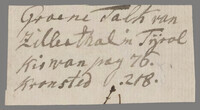 Groene Talk van
Zillerthal in Tyrol
Kirwan pag 76.
Kronsted . 218.